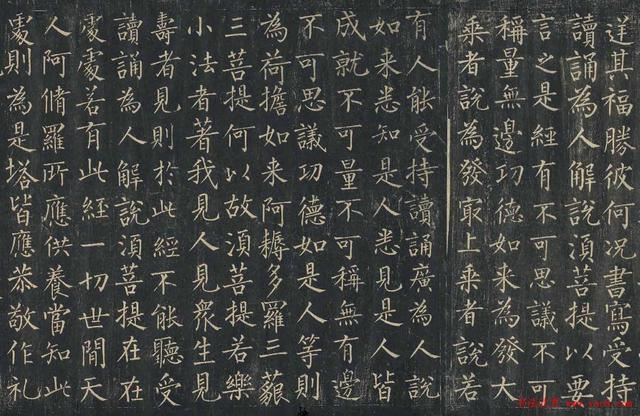 逆其福勝彼何况書寫受持
讀誦為人解說湏菩提以要
言之是經有不可思議不可
稱量無邊功德如来為發大
乘者說為發冣上乘者說若
有人能受持讀誦廣為人說
如来悉知是人悉見是人皆
成就不可量不可稱無有邊
不可思議功德如是人等則
為荷擔如来阿耨多羅三藐
三菩提何以故湏菩提若樂
小法者著我見人見衆生見
壽者見則於此經不能聽受
讀誦為人解說湏菩提在在
處處若有此經一切世間天
人阿脩羅所應供養當知此
處則為是塔皆應恭敬作礼